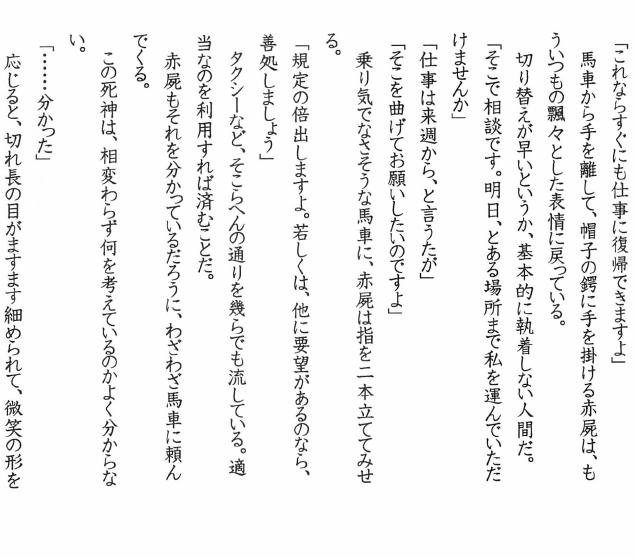 「これならすぐにも仕事に復帰できますよ」
馬車から手を離して、帽子の鍔に手を掛ける赤屍は、も
ういつもの飄々とした表情に戻っている。
切り替えが早いというか、基本的に執着しない人間だ。
「そこで相談です。明日、とある場所まで私を運んでいただ
けませんか」
「仕事は来週から、と言うたが」
「そこを曲げてお願いしたいのですよ」
乗り気でなさそうな馬車に、赤屍は指を二本立ててみせ
る。
「規定の倍出しますよ。若しくは、他に要望があるのなら、
善処しましょう」
タクシーなど、そこらへんの通りを幾らでも流している。適
当なのを利用すれば済むことだ。
赤屍もそれを分かっているだろうに、わざわざ馬車に頼ん
でくる。
この死神は、相変わらず何を考えているのかよく分からな
い。
「……分かった」
応じると、切れ長の目がますます細められて、微笑の形を